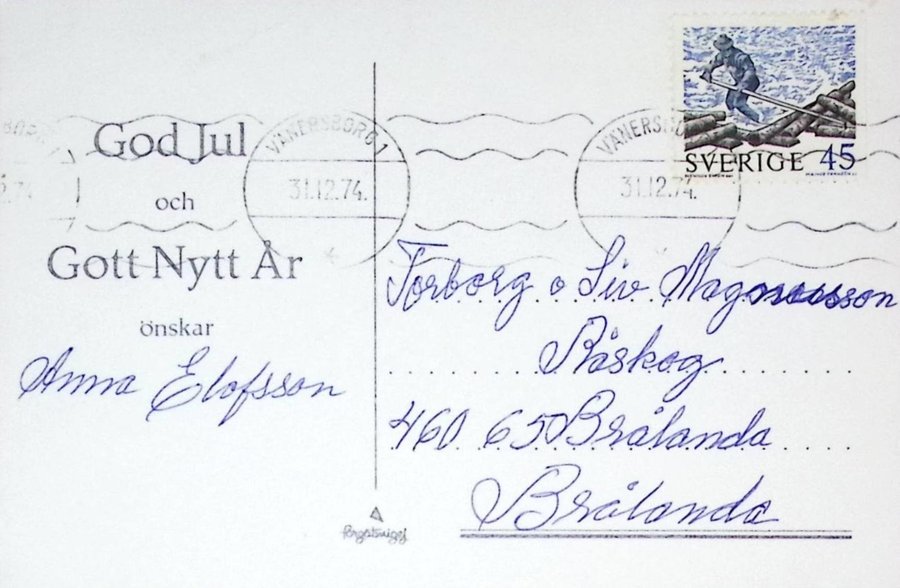 God Jul
och
Gott Nytt År
önskar
Anna Elofsson
VÄNERSBORG 1
31.12.74.
VÄNERSBO
31.12.74.
SVERIGE 45
Torborg o Siv Magnusson
Råskog
460 65 Brålanda
Brålanda